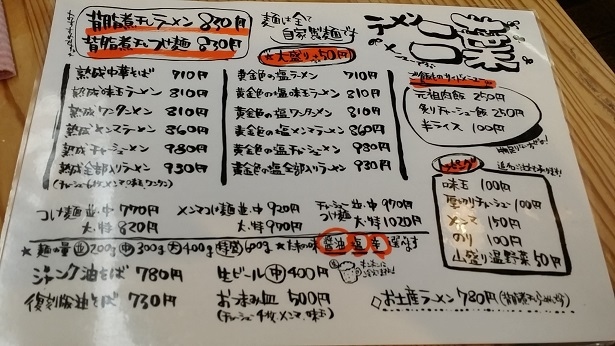 背脂煮干しラーメン 830円
背脂煮干しつけ麺 830円
麺は全て
自家製麺です
★大盛り+50円
熟成中華そば 710円
熟成味玉ラーメン 810円
熟成ワンタンメン 810円
熟成メンマラーメン 860円
熟成チャーシューメン 930円
熟成全部入りラーメン 930円
黄金色の塩ラーメン 710円
黄金色の塩味玉ラーメン 810円
黄金色の塩ワンタンメン 810円
黄金色の塩メンマラーメン 860円
黄金色の塩チャーシューメン 930円
黄金色の塩全部入りラーメン 930円
元祖肉飯 250円
炙りチャーシュー飯 250円
半ライス 100円
トッピング
味玉 100円
厚切りチャーシュー 100円
メンマ 150円
のり 100円
山盛り温野菜 50円
つけ麺 並・中 770円
大・特 820円
メンマつけ麺 並・中 920円
大・特 970円
チャーシューつけ麺 並・中 970円
大・特 1020円
★麺の量 並200g 中300g 大400g 特盛600g
醤油 塩 辛
ジャンク油そば 780円
復刻版油そば 730円
生ビール 中 400円
おつまみ皿 500円
(チャーシュー4枚、メンマ、味玉)
◇お土産ラーメン 780円